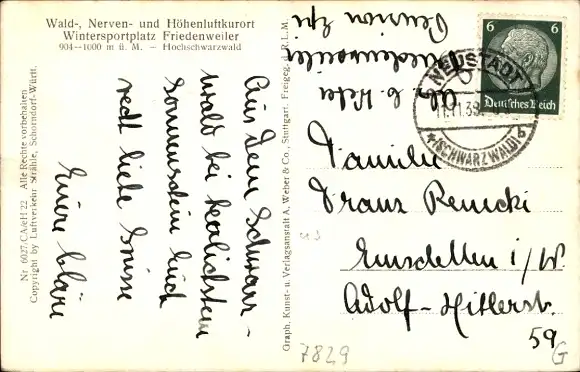 Wald-, Nerven- und Höhenluftkurort
Wintersportplatz Friedenweiler
904--1000 m ü. M. – Hochschwarzwald
Aus dem Schwarz-
wald bei herrlichstem
Sonnenschein Euch
recht liebe Grüsse
Eure Kläre
Nr. 6027/CA/eH 22 Alle Rechte vorbehalten
Copyright by Luftverkehr Strähle, Schorndorf-Württ.
Graph. Kunst- u. Verlagsanstalt A. Weber & Co., Stuttgart. Freigeg. d. R.L.M.
Abs.
Friedenweiler
Pension
6 6
Deutsches Reich
NEUSTADT
(SCHWARZWALD)
b
Familie
Franz
Emsdetten i/W.
Adolf-Hitlerst.
59
7829
G